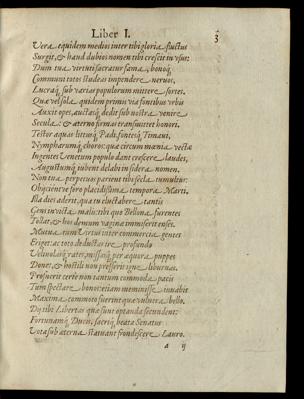 Liber I. 3
Vera equidem medios inter tibi gloria fluctus
Surgit, & haud dubios nomen tibi crescit in usus:
Dum tua virtuti sacratur fama, bonoq́
Communi totos studeas impendere neruos,
Lucraq́ sub varias populorum mittere sortes.
Qua vel sola quidem primis via fontibus vrbis
Auxit opes, auctasq́ dedit sub nostra venire
Secula: & aeterno firmas transmittet honori.
Testor aquas littusq́ Padi, fontesq́ Timaui,
Nympharumq́ choros: qua circum mœnia vectæ
Ingentes Venetum populo danc crescere laudes,
Augustumq́ iubent delabi in sidera nomen.
Non tua perpetuus pariens tibi secla tumultus:
Obijcient ve foro placidissima tempora Marti.
Illa dies aderit, qua tu eluctabere tantis
Gens inuicta malis: tibi quo Bellona furentes
Tollat, & hos demum vagina immiserit enses.
Mutua cum Virtus inter commercia gentes
Eriget: ac toto deductas ire profundo
Veliuolasq́ rates, missasq́ per aequora puppes
Donet, & hostili non presserit igne liburnas.
Profuerit cernium tantum commoda pacis
Tum spectare bonos: etiam meminisse iuuabit
Maxima commoto fuerint quæ vulnera bello.
Dij tibi Libertas quæ sunt optanda secundent:
Fortunamq́ Ducis, sacriq́ beata Senatus
Vota sub aeterna statuant frondescere Lauro.
a ij